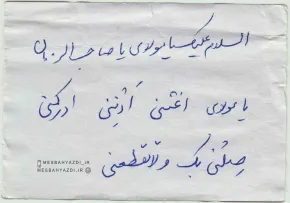 السلام علیک یا مولای یا صاحب الزمان
یا مولای اغثنی أدرِنی ادرکنی
صِلْنی بک و لاتقطعنی
MESBAHYAZDI_IR
MESBAHYAZDI.IR